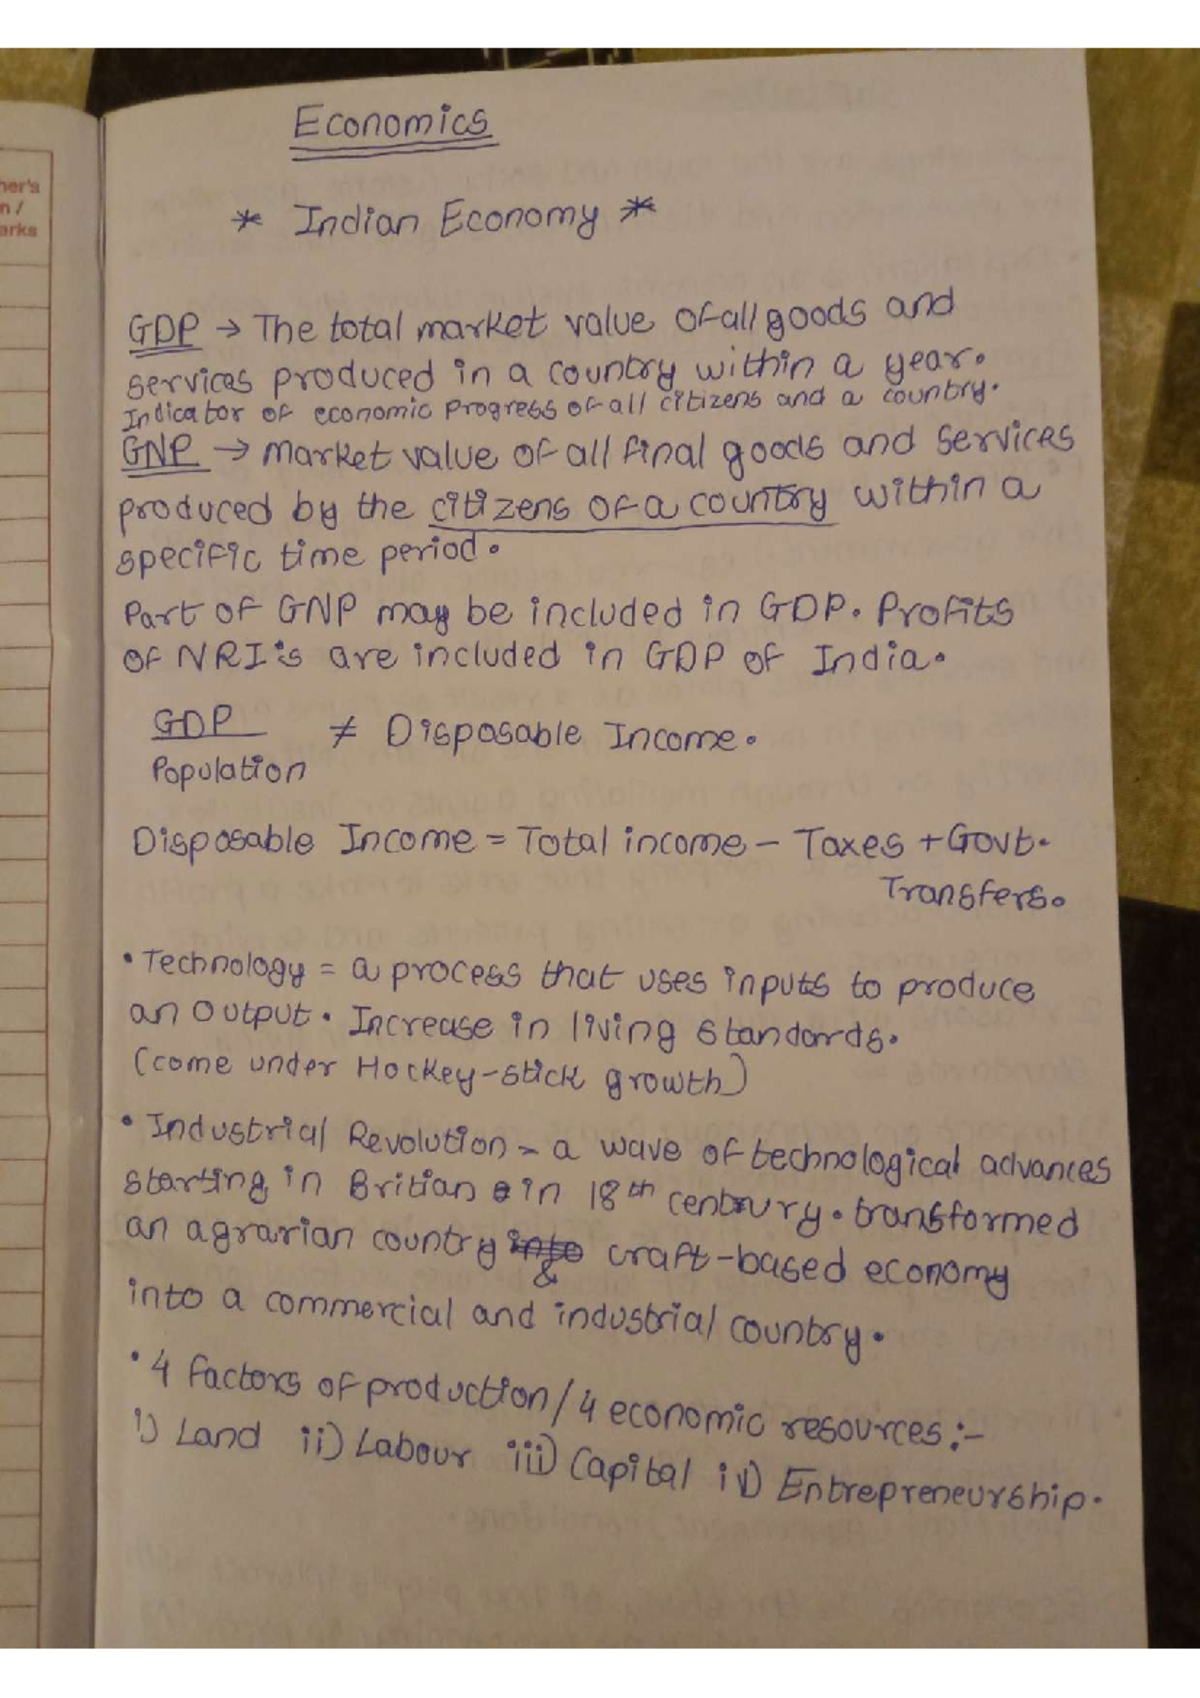 Economics
* Indian Economy *
GDP → The total market value of all goods and
services produced in a country within a year.
Indicator of economic Progress of all citizens and a country.
GNP → Market value of all final goods and services
produced by the citizens of a country within a
specific time period.
Part of GNP may be included in GDP. Profits
of NRI's are included in GDP of India.
GDP
≠ Disposable Income.
Population
Disposable Income = Total income – Taxes + Govt.
Transfers.
• Technology = a process that uses inputs to produce
an output. Increase in living standards.
(come under Hockey-stick growth)
• Industrial Revolution - a wave of technological advances
starting in Britian in 18th century. transformed
an agrarian country & craft-based economy
into a commercial and industrial country.
• 4 factors of production/4 economic resources:-
i) Land ii) Labour iii) Capital iv) Entrepreneurship.